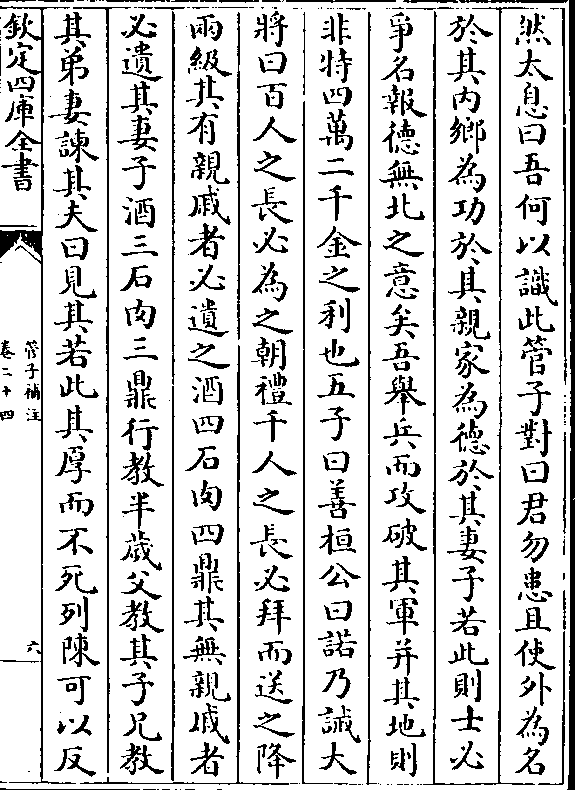 然太息曰吾何以識此管子對曰君勿患且使外為名
於其内鄉為功於其親家為德於其妻子若此則士必
爭名報德無北之意矣吾舉兵而攻破其軍并其地則
非特四萬二千金之利也五子曰善桓公曰諾乃誡大
將曰百人之長必為之朝禮千人之長必拜而送之降
兩級其有親戚者必遺之酒四石肉四鼎其無親戚者
必遺其妻子酒三石肉三鼎行教半歲父教其子兄教
其弟妻諫其夫曰見其若此其厚而不死列陳可以反
欽定四庫全書
管子補注
卷二十四
六